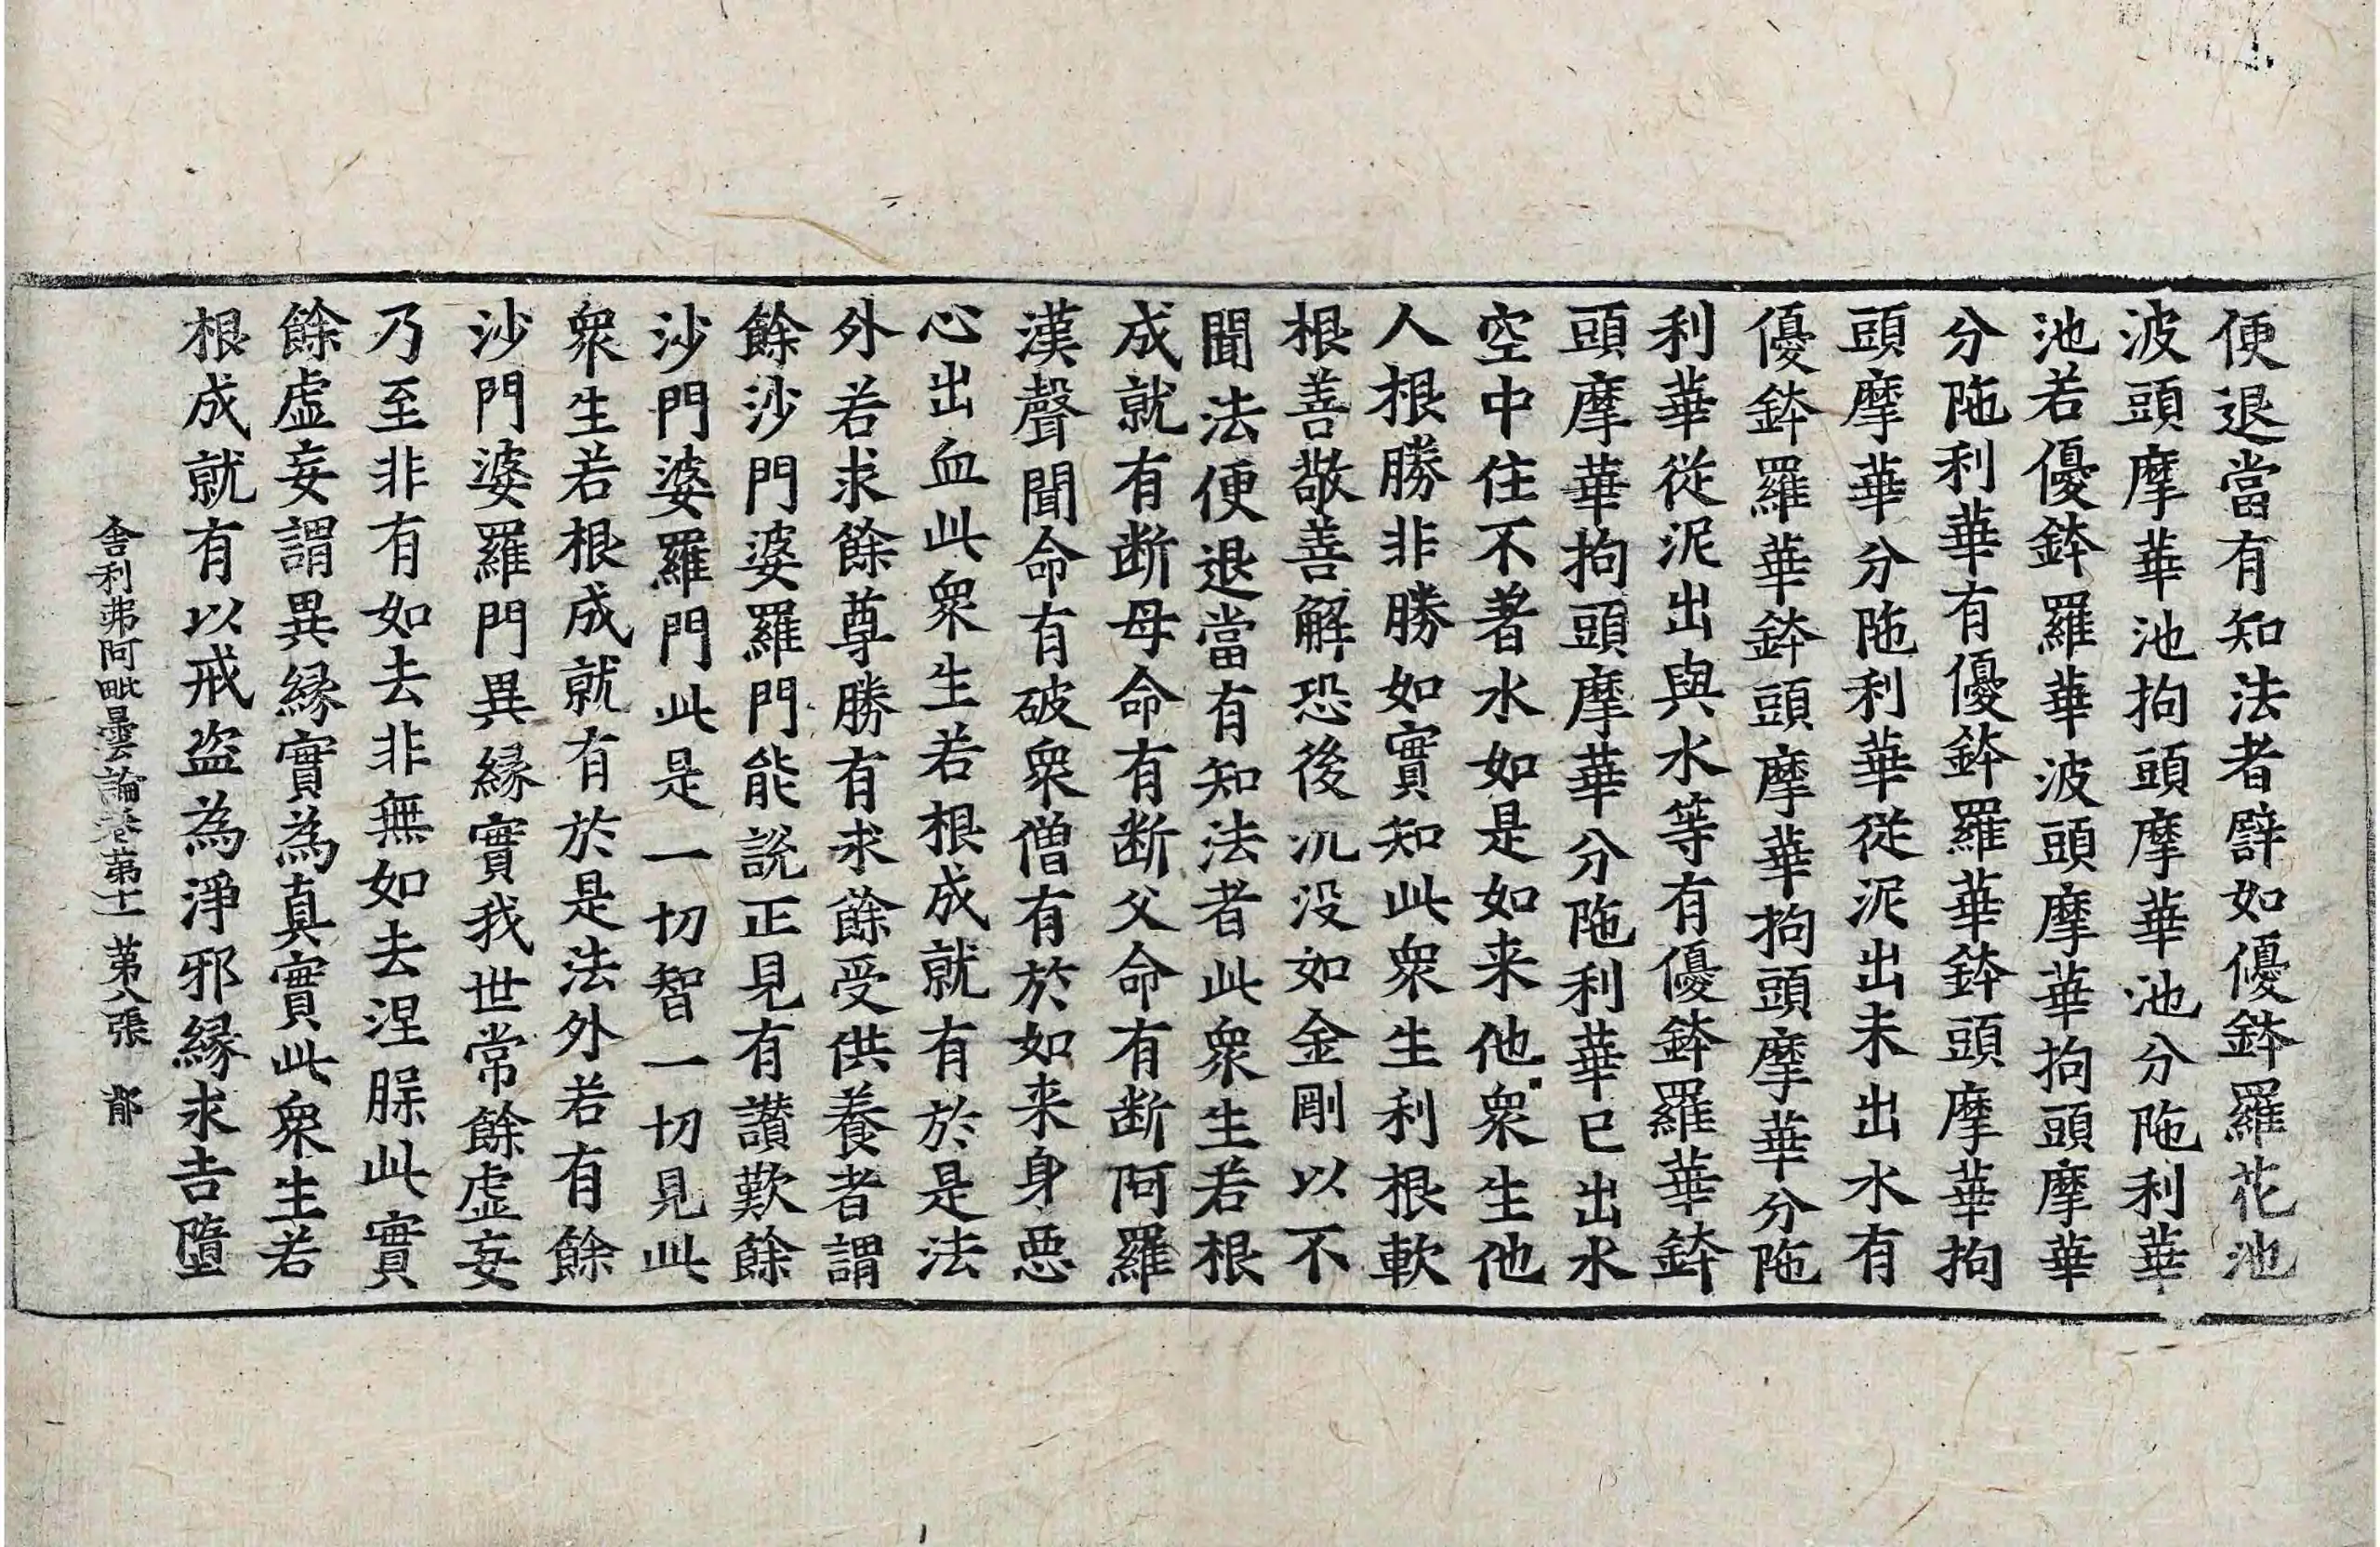 便退當有知法者辟如優鉢羅花池
波頭摩華池拘頭摩華池分陁利華
池若優鉢羅華波頭摩華拘頭摩華
分陁利華有優鉢羅華鉢頭摩華拘
頭摩華分陁利華從泥出未出水有
優鉢羅華鉢頭摩華拘頭摩華分陁
利華從泥出與水等有優鉢羅華鉢
頭摩華拘頭摩華分陁利華已出水
空中住不著水如是如来他衆生他
人根勝非勝如實知此衆生利根軟
根善敬善解恐後沉没如金剛以不
聞法便退當有知法者此衆生若根
成就有断母命有断父命有断阿羅
漢聲聞命有破衆僧有於如来身惡
心出血此衆生若根成就有於是法
外若求餘尊勝有求餘受供養者謂
餘沙門婆羅門能説正見有讃歎餘
沙門婆羅門此是一切智一切見此
衆生若根成就有於是法外若有餘
沙門婆羅門異緣實我世常餘虛妄
乃至非有如去非無如去涅槃此實
餘虛妄謂異緣實為真實此衆生若
根成就有以戒盗為淨邪緣求吉墮
舎利弗阿毗曇論卷第十一 第八張 郁